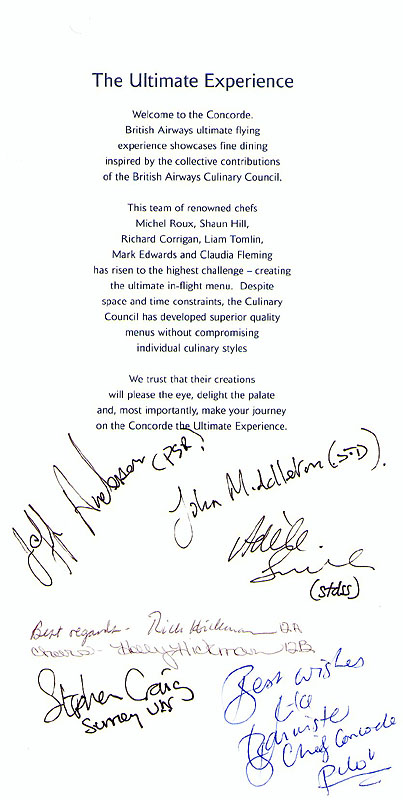 The Ultimate Experience
Welcome to the Concorde.
British Airways ultimate flying
experience showcases fine dining
inspired by the collective contributions
of the British Airways Culinary Council.
This team of renowned chefs
Michel Roux, Shaun Hill,
Richard Corrigan, Liam Tomlin,
Mark Edwards and Claudia Fleming
has risen to the highest challenge – creating
the ultimate in-flight menu. Despite
space and time constraints, the Culinary
Council has developed superior quality
menus without compromising
individual culinary styles
We trust that their creations
will please the eye, delight the palate
and, most importantly, make your journey
on the Concorde the Ultimate Experience.
(PSR)
John Middleton
Adèle
(stdss)
Best regards - Rick Hickman 12A
Cheers - Holly Hickman 12B
Stephen Craig
Surrey UK
Best wishes
Chief Concorde
Pilot